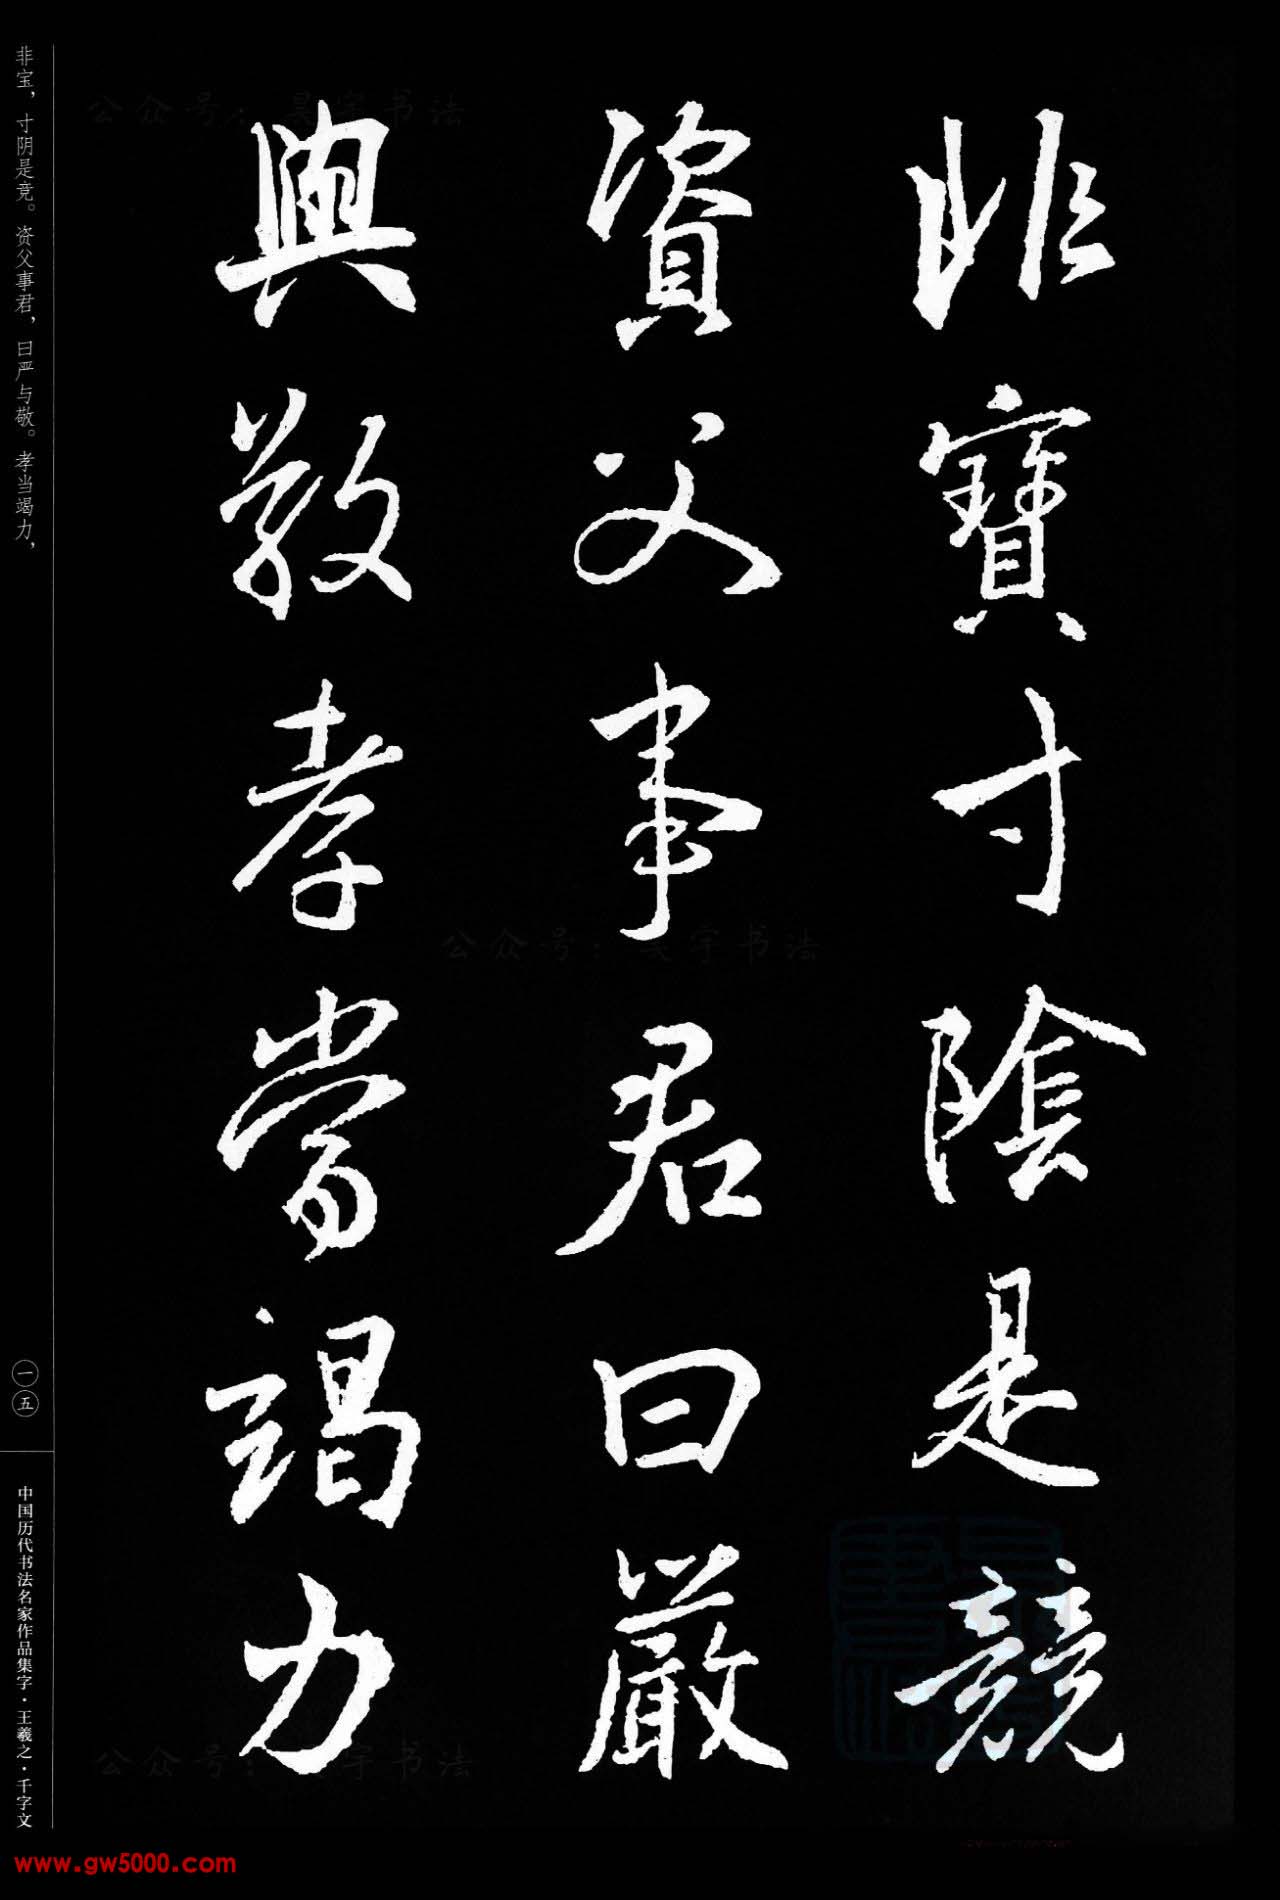 非寶寸陰是競
資父事君曰嚴
與敬孝當竭力
非宝，寸阴是竞。资父事君，曰严与敬。孝当竭力，
一五
中国历代书法名家作品集字·王羲之·千字文
公众号：昊宇书法
公众号：昊宇书法
公众号：昊宇书法
www.gw5000.com